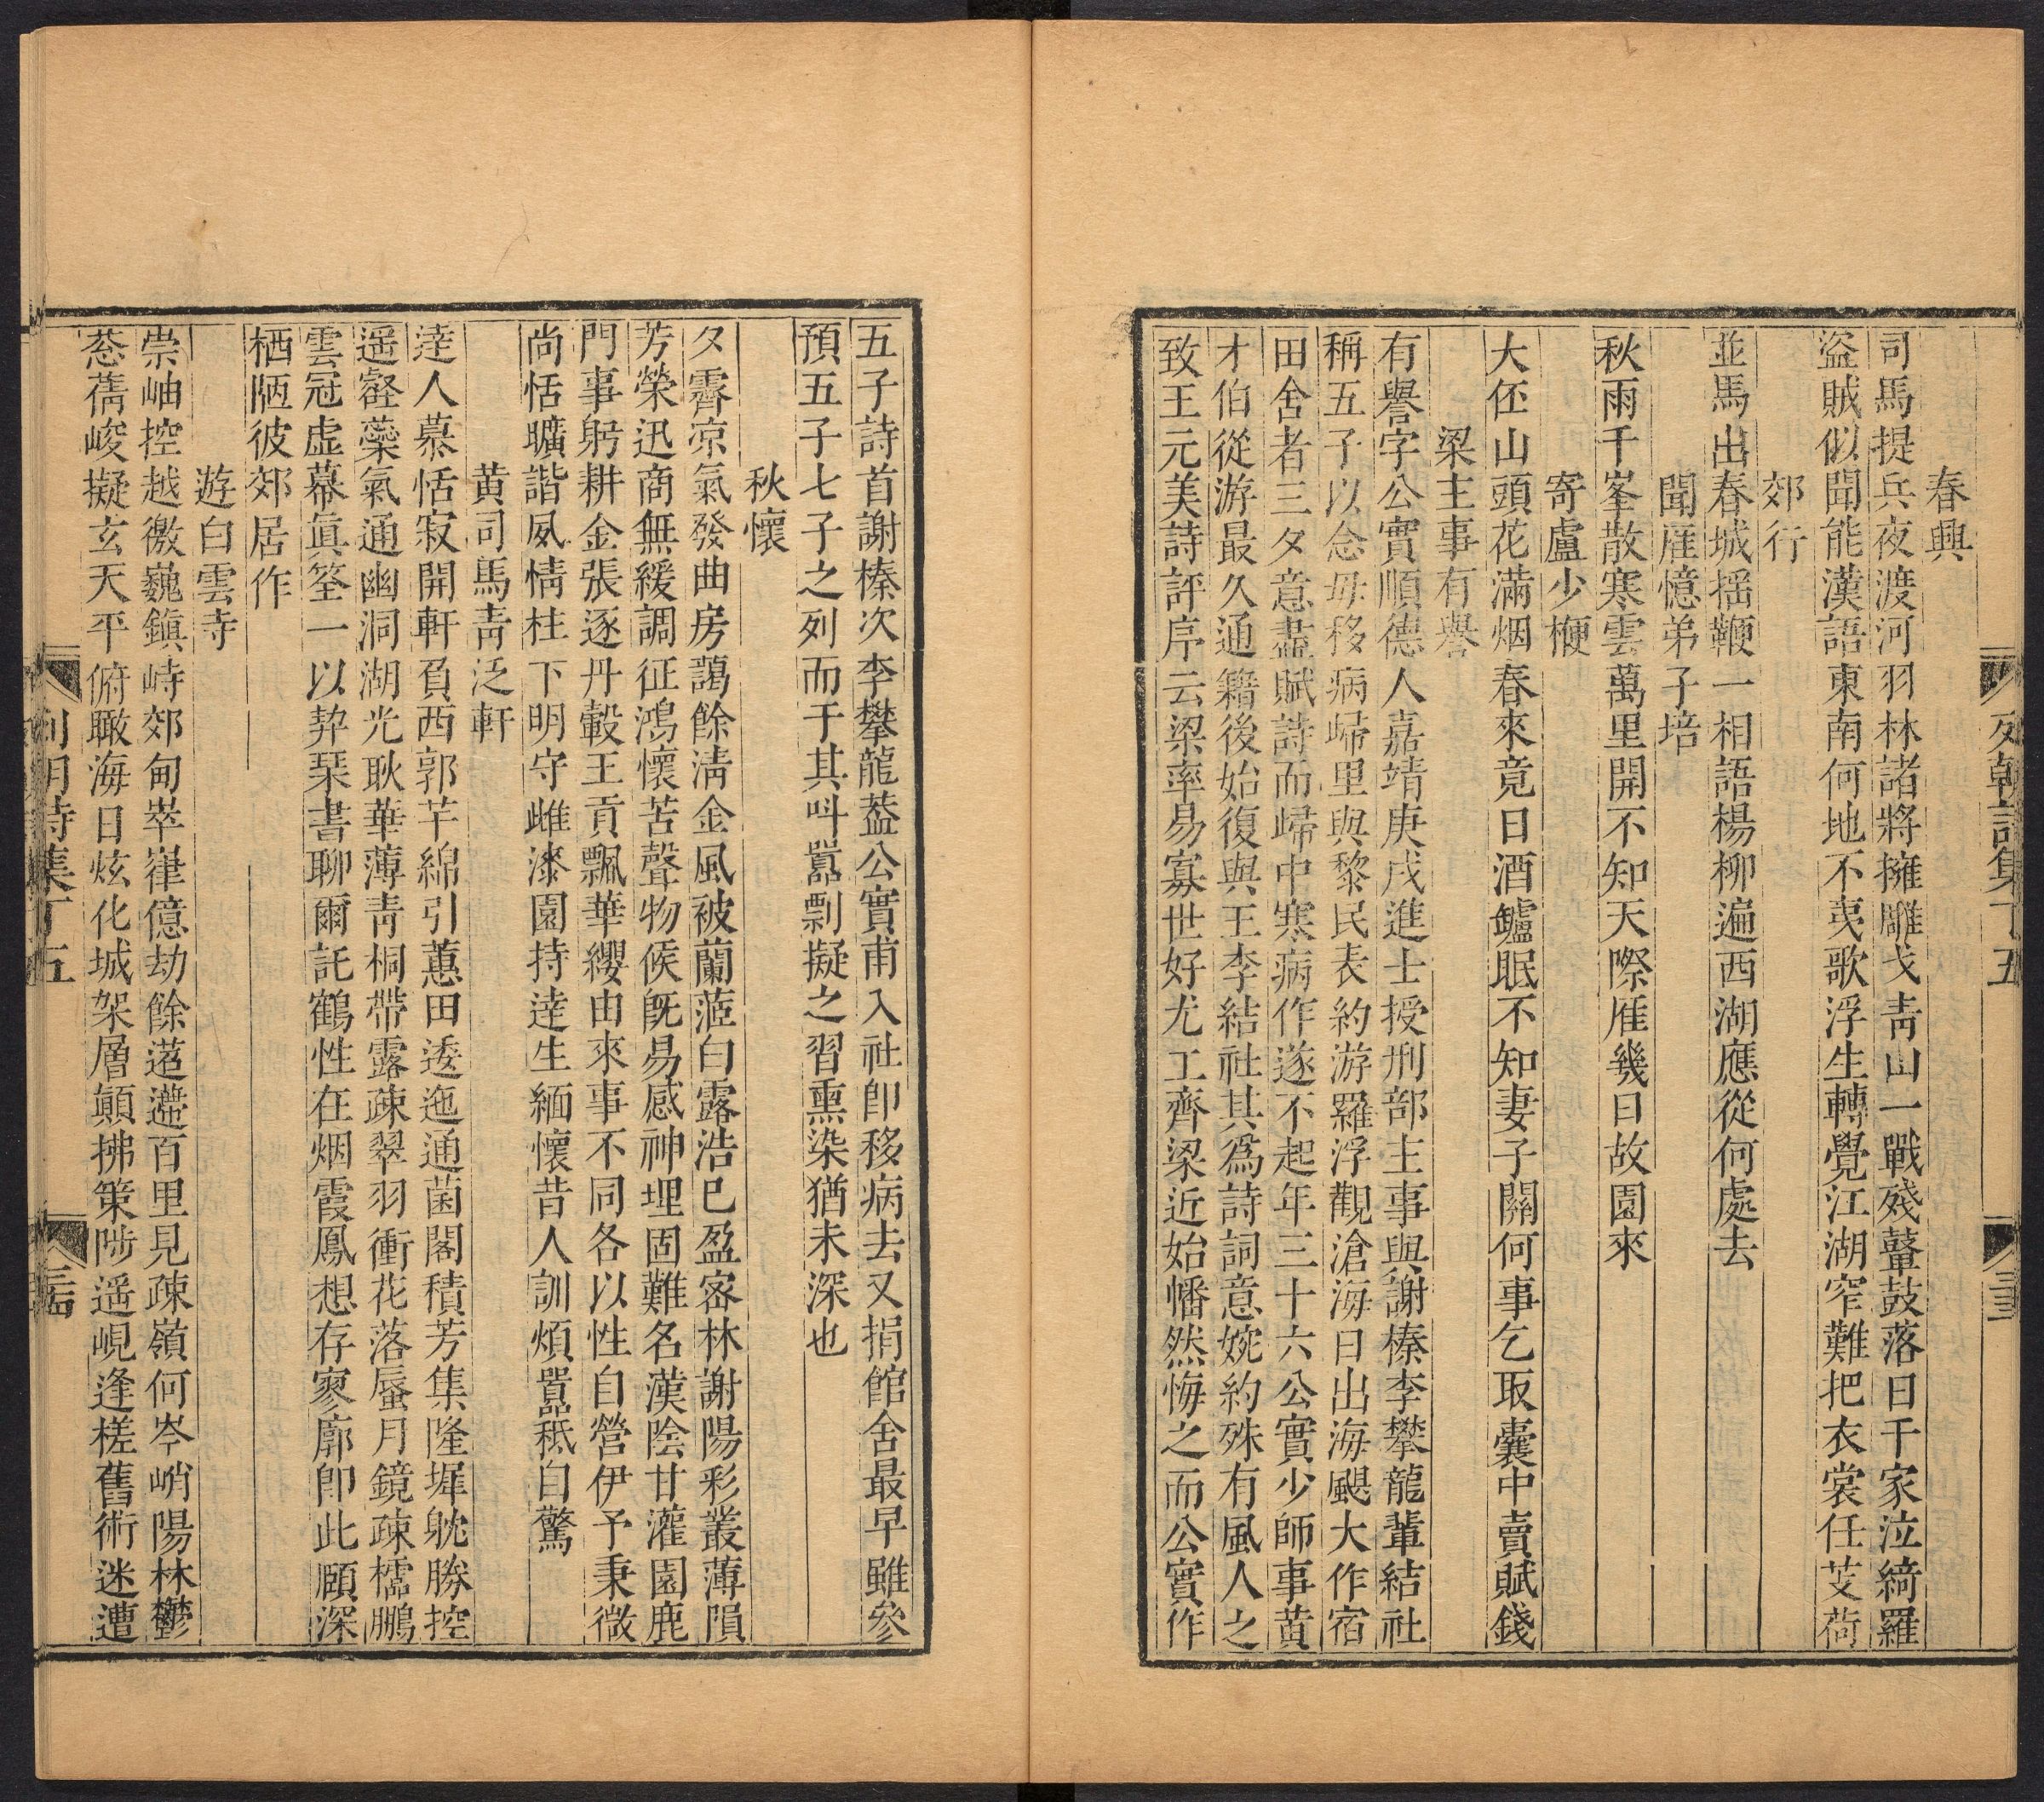 列朝詩集丁五
春興
司馬提兵夜渡河羽林諸將擁雕戈青山一戰殘鼙鼓落日千家泣綺羅
盜賊似聞能漢語東南何地不夷歌浮生轉覺江湖窄難把衣裳任芰荷
郊行
並馬出春城揺鞭一相語楊柳遍西湖應從何處去
聞雁憶弟子培
秋雨千峯散寒雲萬里開不知天際雁幾日故園來
寄盧少楩
大伾山頭花滿烟春來竟日酒罏眠不知妻子關何事乞取囊中賣賦錢
梁主事有譽
有譽字公實順德人嘉靖庚戌進士授刑部主事與謝榛李攀龍輩結社
稱五子以念母移病歸里與黎民表約游羅浮觀滄海日出海颶大作宿
田舍者三夕意盡賦詩而歸中寒病作遂不起年三十六公實少師事黄
才伯從游最久通籍後始復與王李結社其爲詩詞意婉約殊有風人之
致王元美詩評序云梁率易寡世好尤工齊梁近始幡然悔之而公實作
五子詩首謝榛次李攀龍葢公實甫入社卽移病去又捐館舍最早雖參
預五子七子之列而于其叫囂剽擬之習熏染猶未深也
秋懷
夕霽凉氣發曲房藹餘淸金風被蘭蒞白露浩已盈密林謝陽彩叢薄隕
芳榮迅商無緩調征鴻懷苦聲物候旣易感神理固難名漢陰甘灌園鹿
門事躬耕金張逐丹轂王貢飄華纓由來事不同各以性自營伊予秉微
尚恬曠諧夙情柱下明守雌漆園持達生緬懷昔人訓煩囂秪自驚
黄司馬青泛軒
達人慕恬寂開軒負西郭芊綿引蕙田逶迤通菌閣積芳集隆墀躭勝控
遥壑藥氣通幽洞湖光耿華薄青桐帶露疎翠羽衝花落蜃月鏡疎櫺鵬
雲冠虚幕眞筌一以䒶琹書聊爾託鶴性在烟霞鳳想存寥廓卽此願深
栖陋彼郊居作
遊白雲寺
崇岫控越徼巍鎭峙郊甸崒嵂億劫餘遥邐百里見疎嶺何岑峭陽林鬱
葱蒨峻擬玄天平俯瞰海日炫化城架層巔拂策陟遥峴逢槎舊術迷遭
列朝詩集丁五